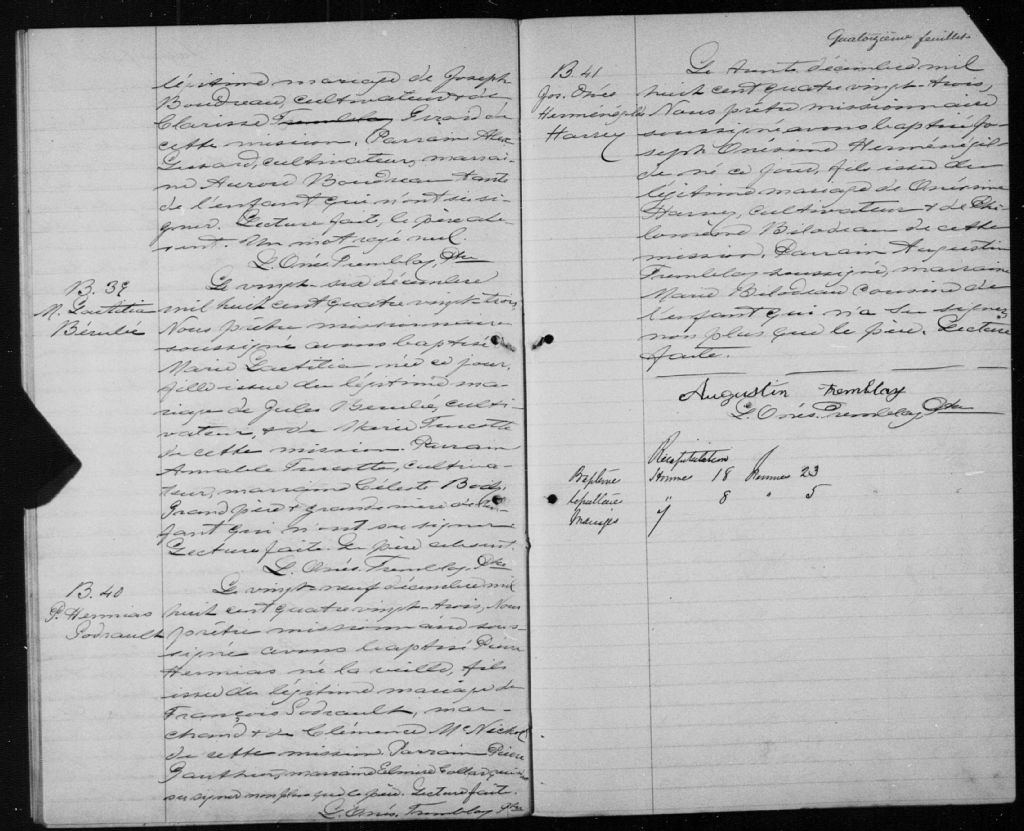 légitime mariage de Joseph
Boudreau, cultivateur & de
Clarisse Tremblay Girard de
cette mission. Parrain Alex
Girard, cultivateur, marrai-
ne Aurore Boudreau tante
de l'enfant qui n'ont su si-
gner. Lecture faite, le père ab-
sent. Un mot rayé nul.
L. Onés. Tremblay, Ptre
B. 39
M. Laetitia
Bérubé
Le vingt-six décembre
mil huit cent quatre vingt-trois,
Nous prêtre missionnaire
soussigné avons baptisé
Marie Laetitia née ce jour,
fille issue du légitime ma-
riage de Jules Bérubé, culti-
vateur, & de Marie Turcotte
de cette mission. Parrain
Amable Turcotte, cultiva-
teur, marraine Céleste
Grand père & grande mère de l'en-
fant qui n'ont su signer
Lecture faite. Le père absent.
L. Onés. Tremblay, Ptre
B. 40
P. Hermias
Godreault
Le vingt-neuf décembre mil
huit cent quatre vingt-trois, Nous
prêtre missionnaire sous-
signé avons baptisé Pierre
Hermias né la veille, fils
issu du légitime mariage de
François Godreault, mar-
chand & de Clémence McNichol
de cette mission. Parrain Pierre
Gauthier, marraine Elmire
su signer non plus que le père. Lecture faite.
L. Onés. Tremblay Ptre
Quatorzième feuillet
B. 41
Jos. Onée
Herménégilde
Harvey
Le trente décembre mil
huit cent quatre vingt-trois,
Nous prêtre missionnaire
soussigné avons baptisé Jo-
seph Onésime Herménégil-
de né ce jour, fils issu du
légitime mariage de Onésime
Harvey, cultivateur & de Phi-
lomène Bilodeau de cette
mission. Parrain Augustin
Tremblay soussigné, marraine
Marie Bilodeau cousine de
l'enfant qui n'a su signer
non plus que le père. Lecture
faite.
Augustin Tremblay
L. Onés. Tremblay, Ptre
Récapitulation
Baptême Hommes 18 Femmes 23
Sépulture " 8 " 5
Mariages 7